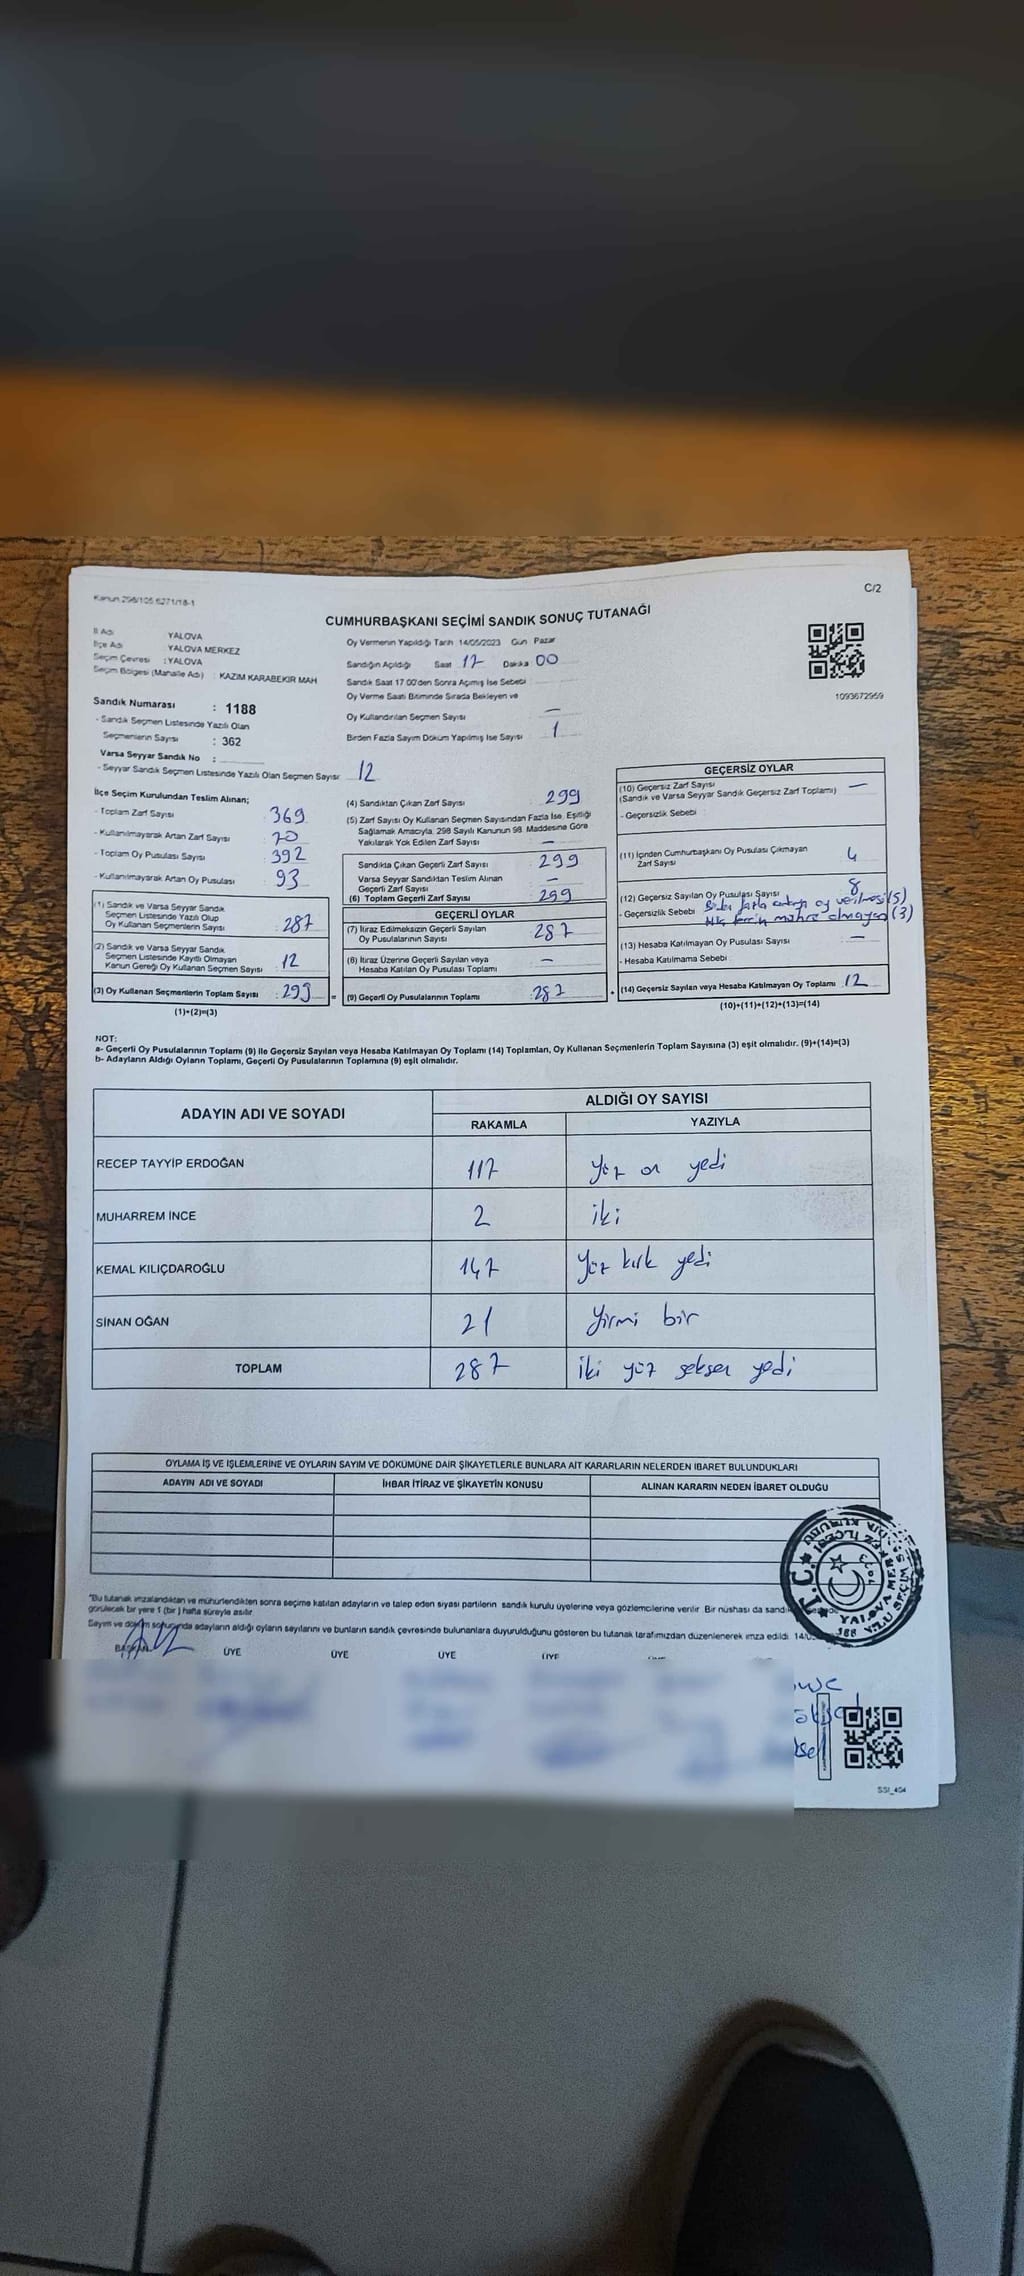 Kanun 298/105 6271/18-1
C/2
CUMHURBAŞKANI SEÇİMİ SANDIK SONUÇ TUTANAĞI
İl Adı YALOVA
İlçe Adı YALOVA MERKEZ
Seçim Çevresi : YALOVA
Seçim Bölgesi (Mahalle Adı) : KAZIM KARABEKİR MAH
Sandık Numarası : 1188
- Sandık Seçmen Listesinde Yazılı Olan
Seçmenlerin Sayısı : 362
Varsa Seyyar Sandık No :
- Seyyar Sandık Seçmen Listesinde Yazılı Olan Seçmen Sayısı 12
Oy Vermenin Yapıldığı Tarih 14/05/2023 Gün Pazar
Sandığın Açıldığı Saat 17 Dakika 00
Sandık Saat 17 00'den Sonra Açımış İse Sebebi
Oy Verme Saati Bitiminde Sırada Bekleyen ve
Oy Kullandırılan Seçmen Sayısı —
Birden Fazla Sayım Döküm Yapılmış İse Sayısı 1
1093672959
İlçe Seçim Kurulundan Teslim Alınan;
- Toplam Zarf Sayısı 369
- Kullanılmayarak Artan Zarf Sayısı 70
- Toplam Oy Pusulası Sayısı 392
- Kullanılmayarak Artan Oy Pusulası 93
(1) Sandık ve Varsa Seyyar Sandık
Seçmen Listesinde Yazılı Olup
Oy Kullanan Seçmenlerin Sayısı : 287
(2) Sandık ve Varsa Seyyar Sandık
Seçmen Listesinde Kayıtlı Olmayan
Kanun Gereği Oy Kullanan Seçmen Sayısı : 12
(3) Oy Kullanan Seçmenlerin Toplam Sayısı : 299 =
(1)+(2)=(3)
(4) Sandıktan Çıkan Zarf Sayısı 299
(5) Zarf Sayısı Oy Kullanan Seçmen Sayısından Fazla İse, Eşitliği
Sağlamak Amacıyla, 298 Sayılı Kanunun 98. Maddesine Göre
Yakılarak Yok Edilen Zarf Sayısı —
Sandıkta Çıkan Geçerli Zarf Sayısı : 299
Varsa Seyyar Sandıktan Teslim Alınan
Geçerli Zarf Sayısı —
(6) Toplam Geçerli Zarf Sayısı : 299
GEÇERLİ OYLAR
(7) İtiraz Edilmeksizin Geçerli Sayılan
Oy Pusulalarının Sayısı : 287
(8) İtiraz Üzerine Geçerli Sayılan veya
Hesaba Katılan Oy Pusulası Toplamı —
(9) Geçerli Oy Pusulalarının Toplamı : 287 +
GEÇERSİZ OYLAR
(10) Geçersiz Zarf Sayısı
(Sandık ve Varsa Seyyar Sandık Geçersiz Zarf Toplamı) —
- Geçersizlik Sebebi
(11) İçinden Cumhurbaşkanı Oy Pusulası Çıkmayan
Zarf Sayısı 4
(12) Geçersiz Sayılan Oy Pusulası Sayısı 8
- Geçersizlik Sebebi Birden fazla adaya oy verilmesi (5)
mühre olmayan (3)
(13) Hesaba Katılmayan Oy Pusulası Sayısı —
- Hesaba Katılmama Sebebi
(14) Geçersiz Sayılan veya Hesaba Katılmayan Oy Toplamı 12
(10)+(11)+(12)+(13)=(14)
NOT:
a- Geçerli Oy Pusulalarının Toplamı (9) İle Geçersiz Sayılan veya Hesaba Katılmayan Oy Toplamı (14) Toplamları, Oy Kullanan Seçmenlerin Toplam Sayısına (3) eşit olmalıdır. (9)+(14)=(3)
b- Adayların Aldığı Oyların Toplamı, Geçerli Oy Pusulalarının Toplamına (9) eşit olmalıdır.
ADAYIN ADI VE SOYADI
ALDIĞI OY SAYISI
RAKAMLA YAZIYLA
RECEP TAYYİP ERDOĞAN 117 yüz on yedi
MUHARREM İNCE 2 iki
KEMAL KILIÇDAROĞLU 147 yüz kırk yedi
SİNAN OĞAN 21 yirmi bir
TOPLAM 287 iki yüz seksen yedi
OYLAMA İŞ VE İŞLEMLERİNE VE OYLARIN SAYIM VE DÖKÜMÜNE DAİR ŞİKAYETLERLE BUNLARA AİT KARARLARIN NELERDEN İBARET BULUNDUKLARI
ADAYIN ADI VE SOYADI İHBAR İTİRAZ VE ŞİKAYETİN KONUSU ALINAN KARARIN NEDEN İBARET OLDUĞU
*Bu tutanak imzalandıktan ve mühürlendikten sonra seçime katılan adayların ve talep eden siyasi partilerin sandık kurulu üyelerine veya gözlemcilerine verilir. Bir nüshası da sandık
görülecek bir yere 1 (bir) hafta süreyle asılır.
Sayım ve döküm sonucunda adayların aldığı oyların sayılarını ve bunların sandık çevresinde bulunanlara duyurulduğunu gösteren bu tutanak tarafımızdan düzenlenerek imza edildi. 14/0
BAŞKAN ÜYE ÜYE ÜYE ÜYE
T.C.
YALOVA MERKEZ İLÇESİ
SSI_404